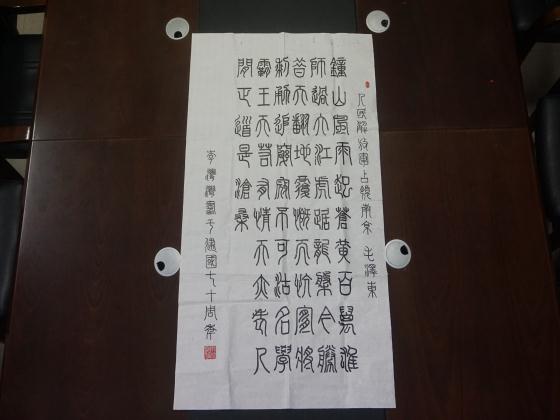 人民解放軍占領南京 毛澤東
鐘山風雨起蒼黄百萬雄
師過大江虎踞龍盤今勝
昔天翻地覆慨而慷宜將
剩勇追窮寇不可沽名學
霸王天若有情天亦老人
間正道是滄桑
李灣灣書于建國七十周年